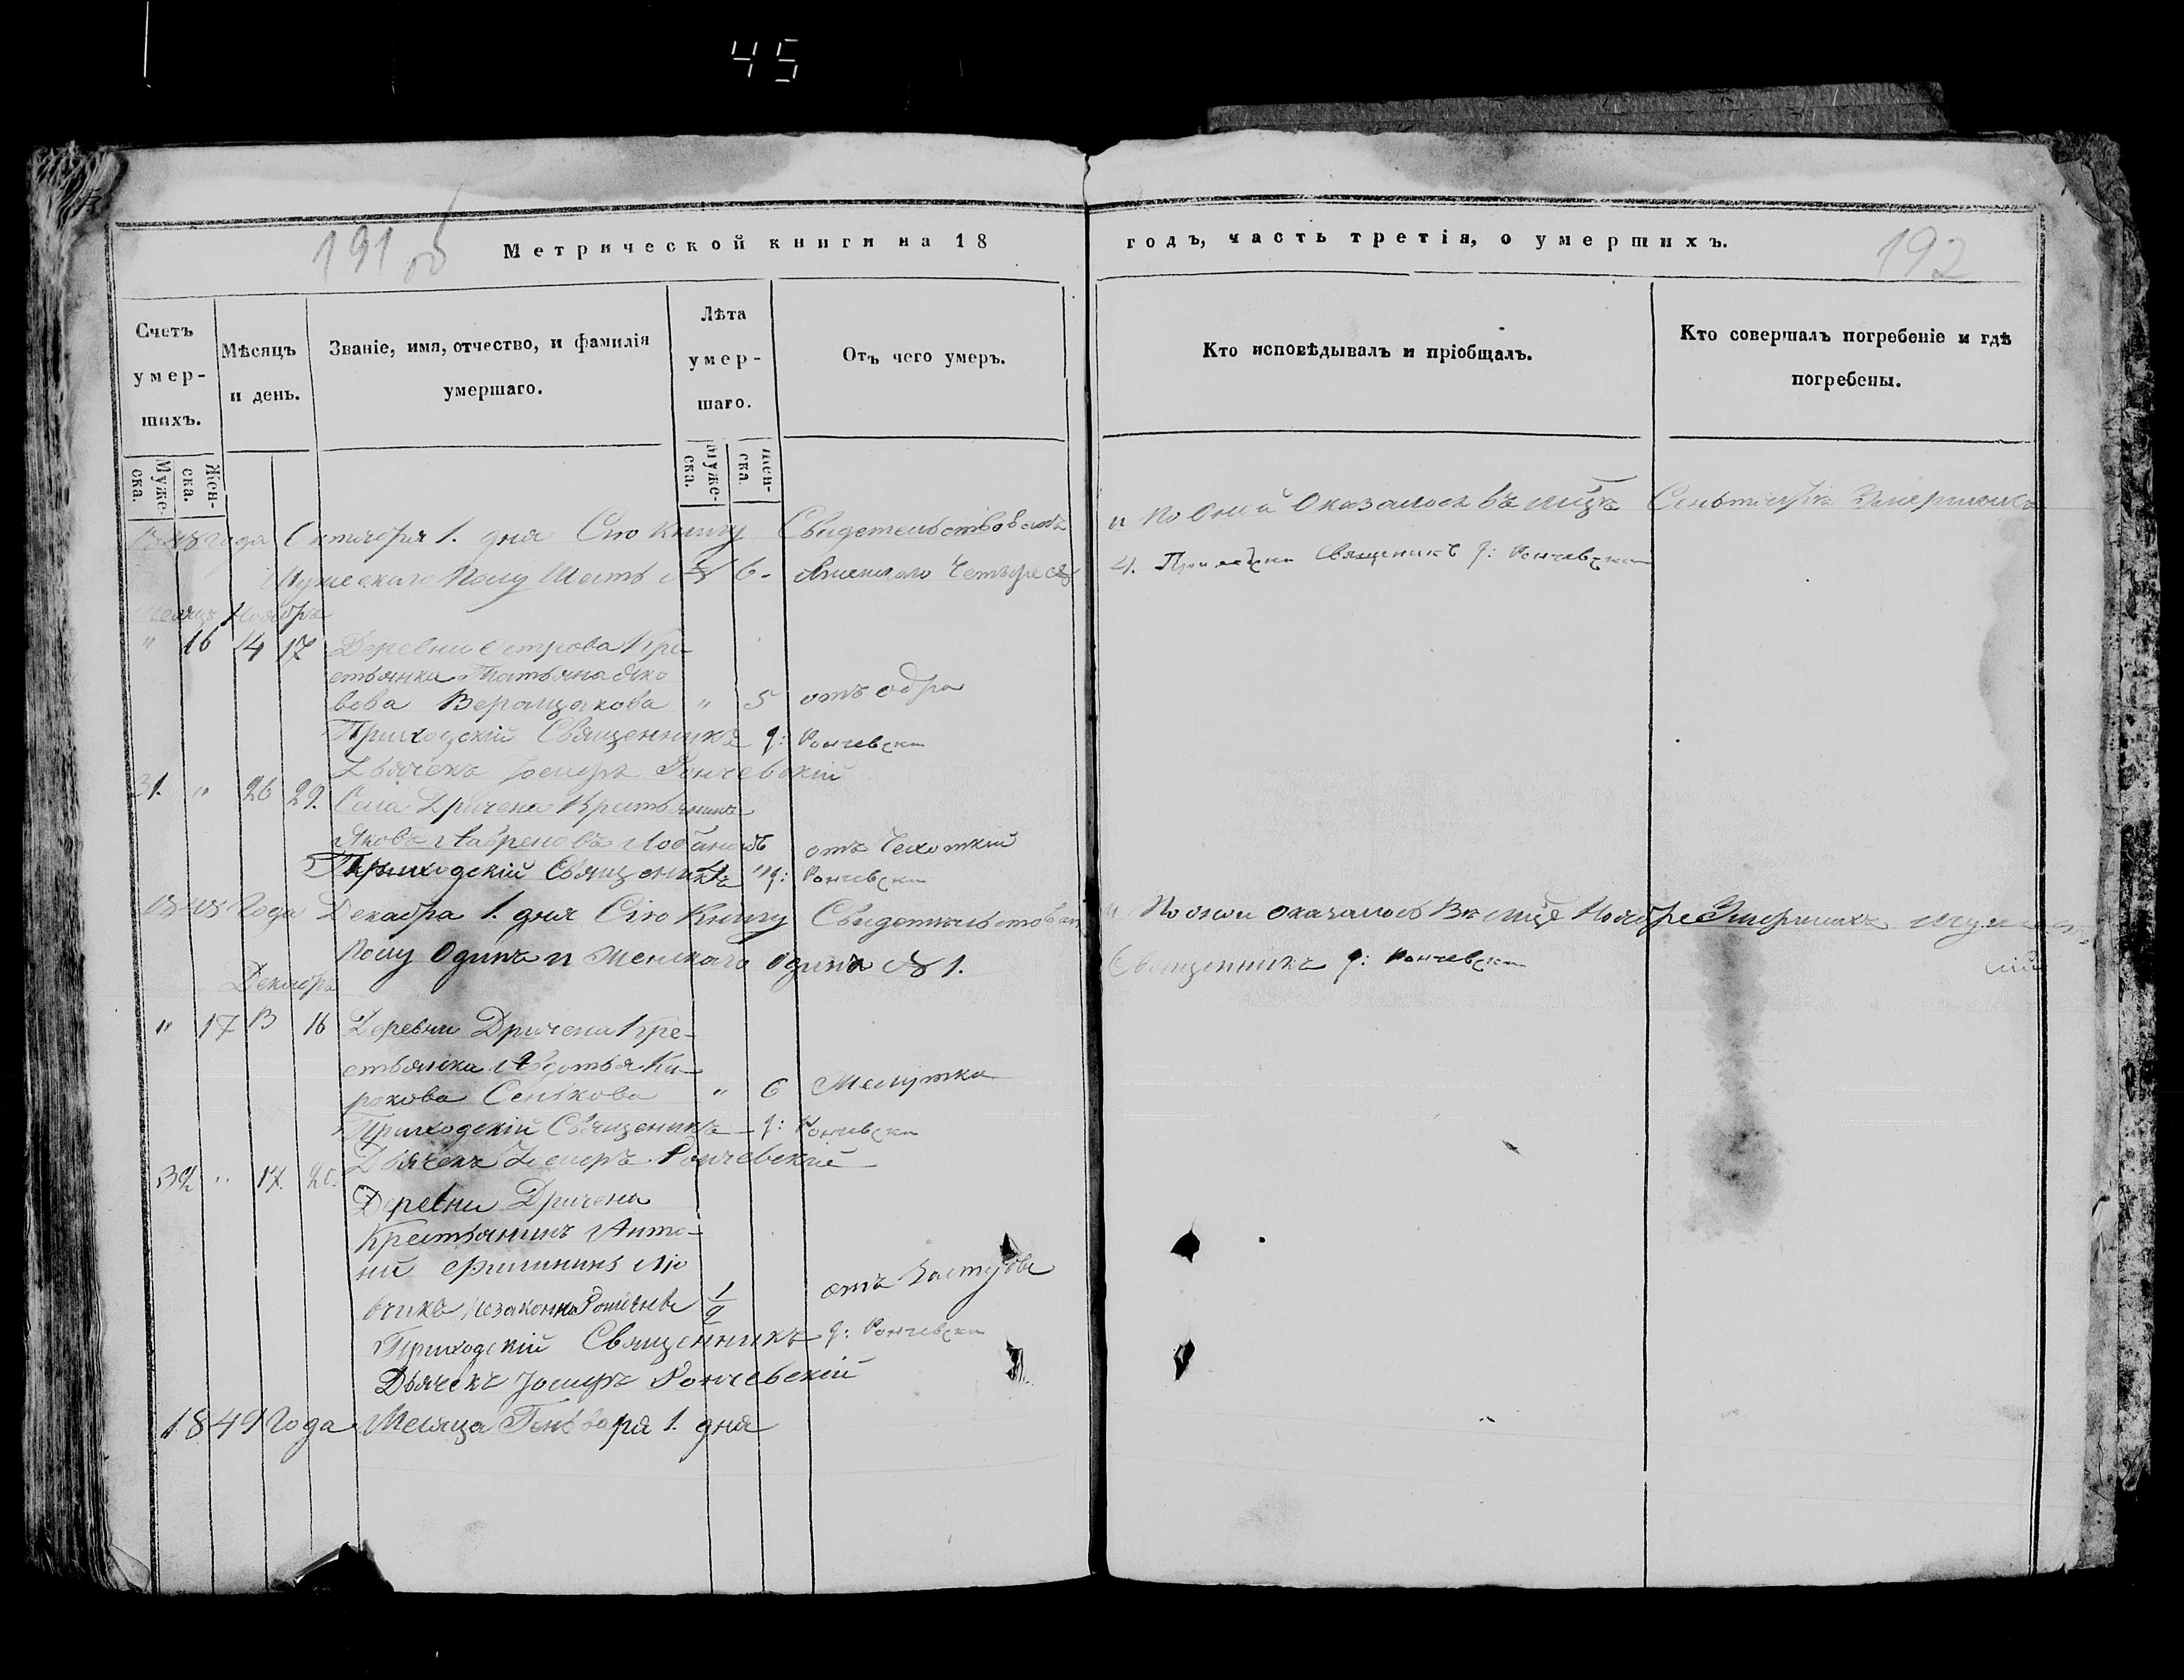 45
191 об
192
Метрической книги на 18 годъ, часть третія, о умершихъ.
Счетъ умер-шихъ.
Муже-ска.
Жен-ска.
Мѣсяцъ и день.
Званіе, имя, отчество, и фамилія умершаго.
Лѣта умер-шаго.
Муже-ска.
Жен-ска
Отъ чего умеръ.
Кто исповѣдывалъ и пріобщалъ.
Кто совершалъ погребеніе и гдѣ погребены.
1848 года Октября 1. дня Сію Книгу Свидетельствовалъ и по оной Оказалось въ Умершихъ
Мужескаго Полу Шесть № 6. Женскаго Четыре № 4. Священникъ Рончевски
Месяцъ Ноябрь
" 16 14 17 Деревни Острова Кре-
стьянка Татьяна Яко
вова " 5 отъ одра
Приходскій Священникъ Рончевски
Дьячекъ Іосифъ Рончевскій
31. " 26 29. Села Дричена Крестьянинъ
Яковъ отъ Чехоткій
Приходскій Священникъ Рончевски
1848 Года Декабра 1. дня Сію Книгу и По оной оказалось Въ Ноябре Умершихъ
Полу Одинъ и Женскаго Одинъ № 1. Священникъ Рончевски
Декабрь
" 17 13 16 Деревни Дричени Кре-
стьянка Авдотья Ки-
рокова Сенькова " 6
Приходскій Священникъ Рончевски
Дьячекъ Іосифъ Рончевскій
32 " 17. 20.
Деревни Дричена
Крестьянинъ Анто-
ній
1/2 отъ
Приходскій Священникъ Рончевски
Дьячекъ Іосифъ Рончевскій
1849 Года Месяца Генваря 1. дня